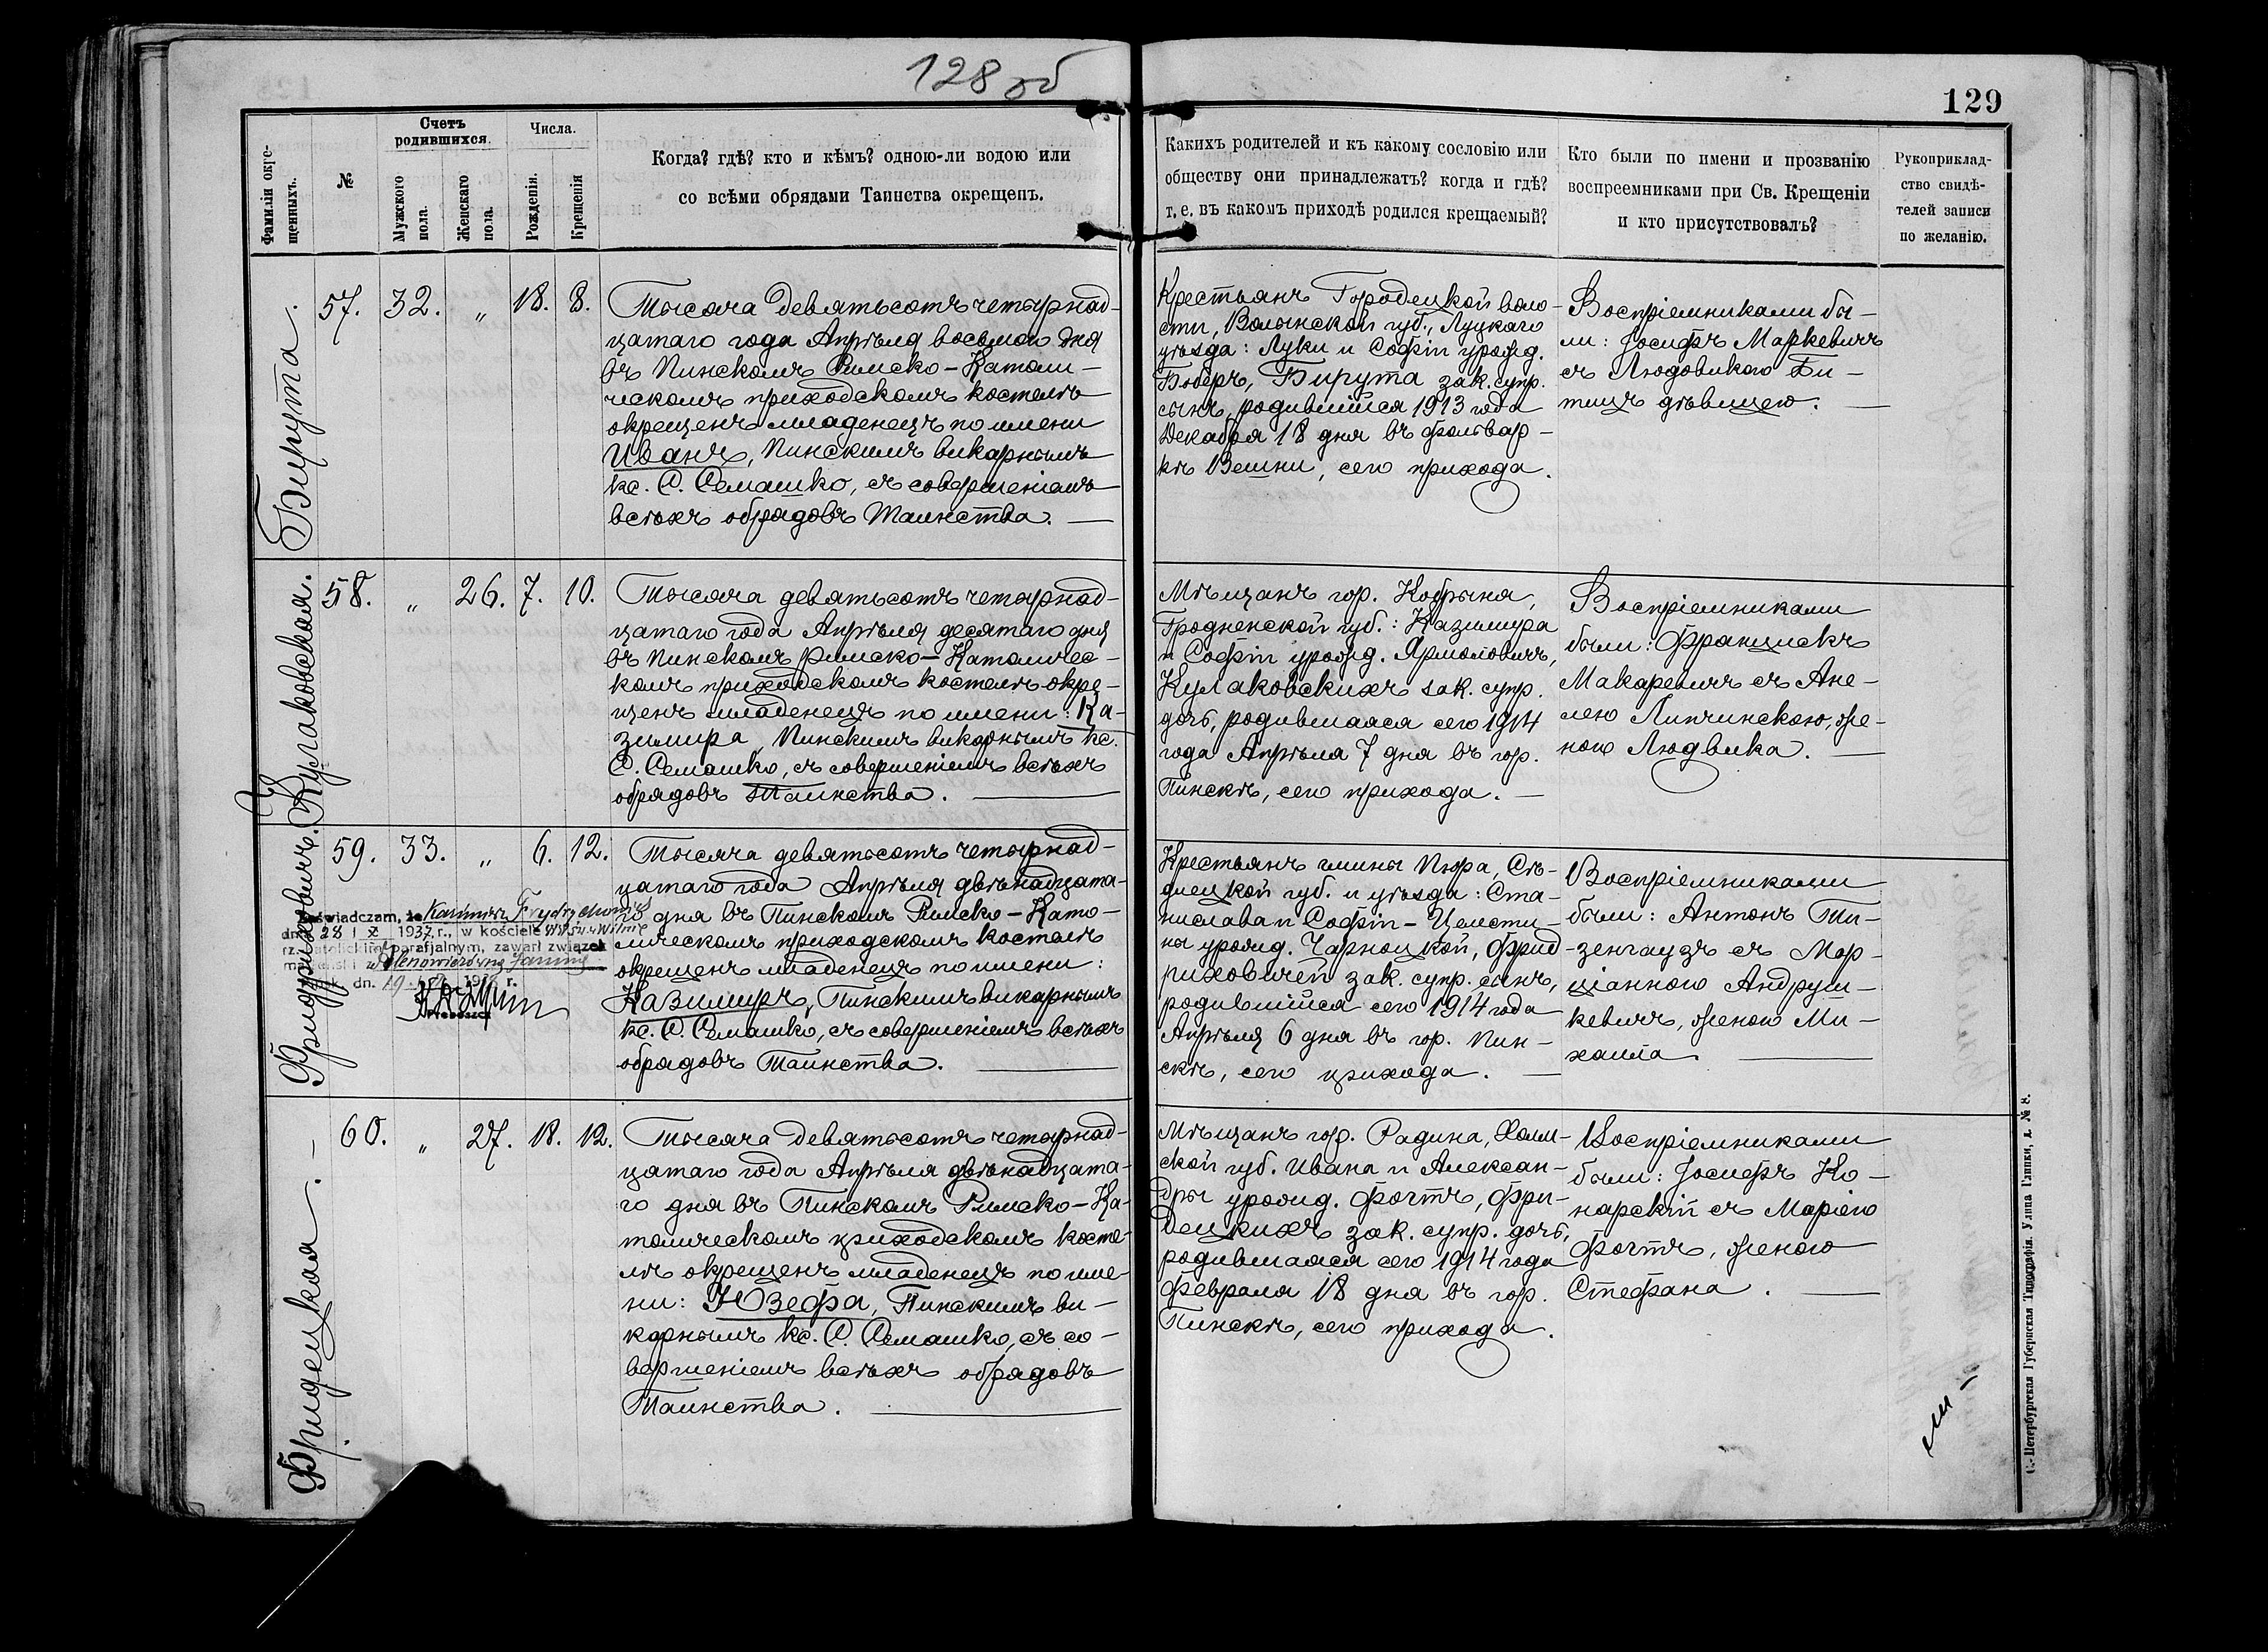 128 об
129
Фамиліи окре-
щенныхъ.
№
Счетъ
родившихся.
Мужского
пола.
Женскаго
пола.
Числа.
Рожденія.
Крещенія
Когда? гдѣ? кто и кѣмъ? одною-ли водою или
со всѣми обрядами Таинства окрещенъ.
Какихъ родителей и къ какому сословію или
обществу они принадлежатъ? когда и гдѣ?
т. е. въ какомъ приходѣ родился крещаемый?
Кто были по имени и прозванію
воспреемниками при Св. Крещеніи
и кто присутствовалъ?
Рукоприклад-
ство свидѣ-
телей записи
по желанію.
Бирута.
57. 32. „ 18. 8.
Тысяча девятьсотъ четырнад-
цатаго года Апрѣля восьмого дня
въ Пинскомъ Римско-Католи-
ческомъ приходскомъ костелѣ
окрещенъ младенецъ по имени
Иванъ, Пинскимъ викарнымъ
кс. С. Семашко, съ совершеніемъ
всѣхъ обрядовъ Таинства. —
Крестьянъ Городецкой воло-
сти, Волынской губ., Луцкаго
уѣзда: Луки и Софіи урожд.
Боберъ, Бирута зак. супр.
сынъ, родившійся 1913 года
Декабря 18 дня въ фольвар-
кѣ Вешни, сего прихода.
Воспріемниками бы-
ли: Іосифъ Маркевичъ
съ Людовикою Би-
тицъ дѣвицею. —
Кулаковская.
58. „ 26. 7. 10.
Тысяча девятьсотъ четырнад-
цатаго года Апрѣля десятаго дня
въ Пинскомъ Римско-Католичес-
комъ приходскомъ костелѣ окре-
щенъ младенецъ по имени: Ка-
зимира, Пинскимъ викарнымъ кс.
С. Семашко, съ совершеніемъ всѣхъ
обрядовъ Таинства. —
Мѣщанъ гор. Кобрына,
Гродненской губ.: Казимира
и Софіи урожд. Ярмоловичъ,
Кулаковскихъ зак. супр.
дочь, родившаяся сего 1914
года Апрѣля 7 дня въ гор.
Пинскѣ, сего прихода. —
Воспріемниками
были: Францискъ
Макаревичъ съ Ане-
лею Липчинскою, же-
ною Людвика. —
Фридриховичъ.
59. 33. „ 6. 12.
Тысяча девятьсотъ четырнад-
цатаго года Апрѣля двѣнадцата-
го дня въ Пинскомъ Римско-Като-
лическомъ приходскомъ костелѣ
окрещенъ младенецъ по имени:
Казимиръ, Пинскимъ викарнымъ
кс. С. Семашко, съ совершеніемъ всѣхъ
обрядовъ Таинства. —
Zaświadczam, że Kazimierz Frydrychowicz
dn. 28 I 1937 r., w kościele
rz. katolickim parafjalnym, zawarł związek
dn. 19
Proboszcz
Крестьянъ гмины Нюра, Сѣ-
длецкой губ. и уѣзда: Ста-
нислава и Софіи-Целести-
ны урожд. Чарноцкой, Фрид-
риховичей зак. супр. сынъ,
родившійся сего 1914 года
Апрѣля 6 дня въ гор. Пин-
скѣ, сего прихода. —
Воспріемниками
были: Антонъ Ти-
зенгаузъ съ Мар-
ціанною Андруш-
кевичъ, женою Ми-
хаила. —
Фридецкая. —
60. „ 27. 18. 12.
Тысяча девятьсотъ четырнад-
цатаго года Апрѣля двѣнадцата-
го дня въ Пинскомъ Римско-Ка-
толическомъ приходскомъ косте-
лѣ окрещенъ младенецъ по име-
ни: Юзефа, Пинскимъ ви-
карнымъ кс. С. Семашко, съ со-
вершеніемъ всѣхъ обрядовъ
Таинства. —
Мѣщанъ гор. Радина, Холм-
ской губ. Ивана и Алексан-
дры урожд. Фогтъ, Фри-
децкихъ зак. супр. дочь,
родившаяся сего 1914 года
Февраля 18 дня въ гор.
Пинскѣ, сего прихода.
Воспріемниками
были: Іосифъ Ко-
нарскій съ Маріею
Фогтъ, женою
Стефана. —
С.-Петербургская Губернская Типографія. Улица Глинки, д. № 8.